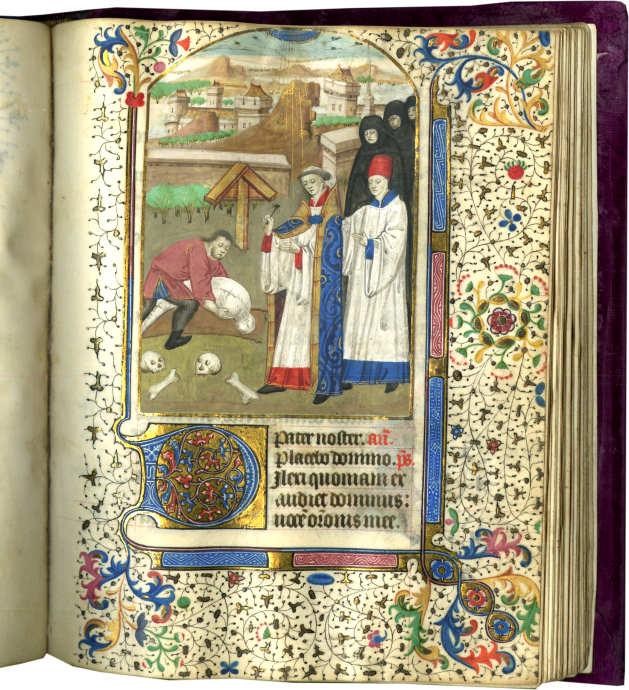 Pater noster. an̄.
Placebo domino. p̄s.
DIlexi quoniam ex
audiet dominus:
uocē orōnis mee.